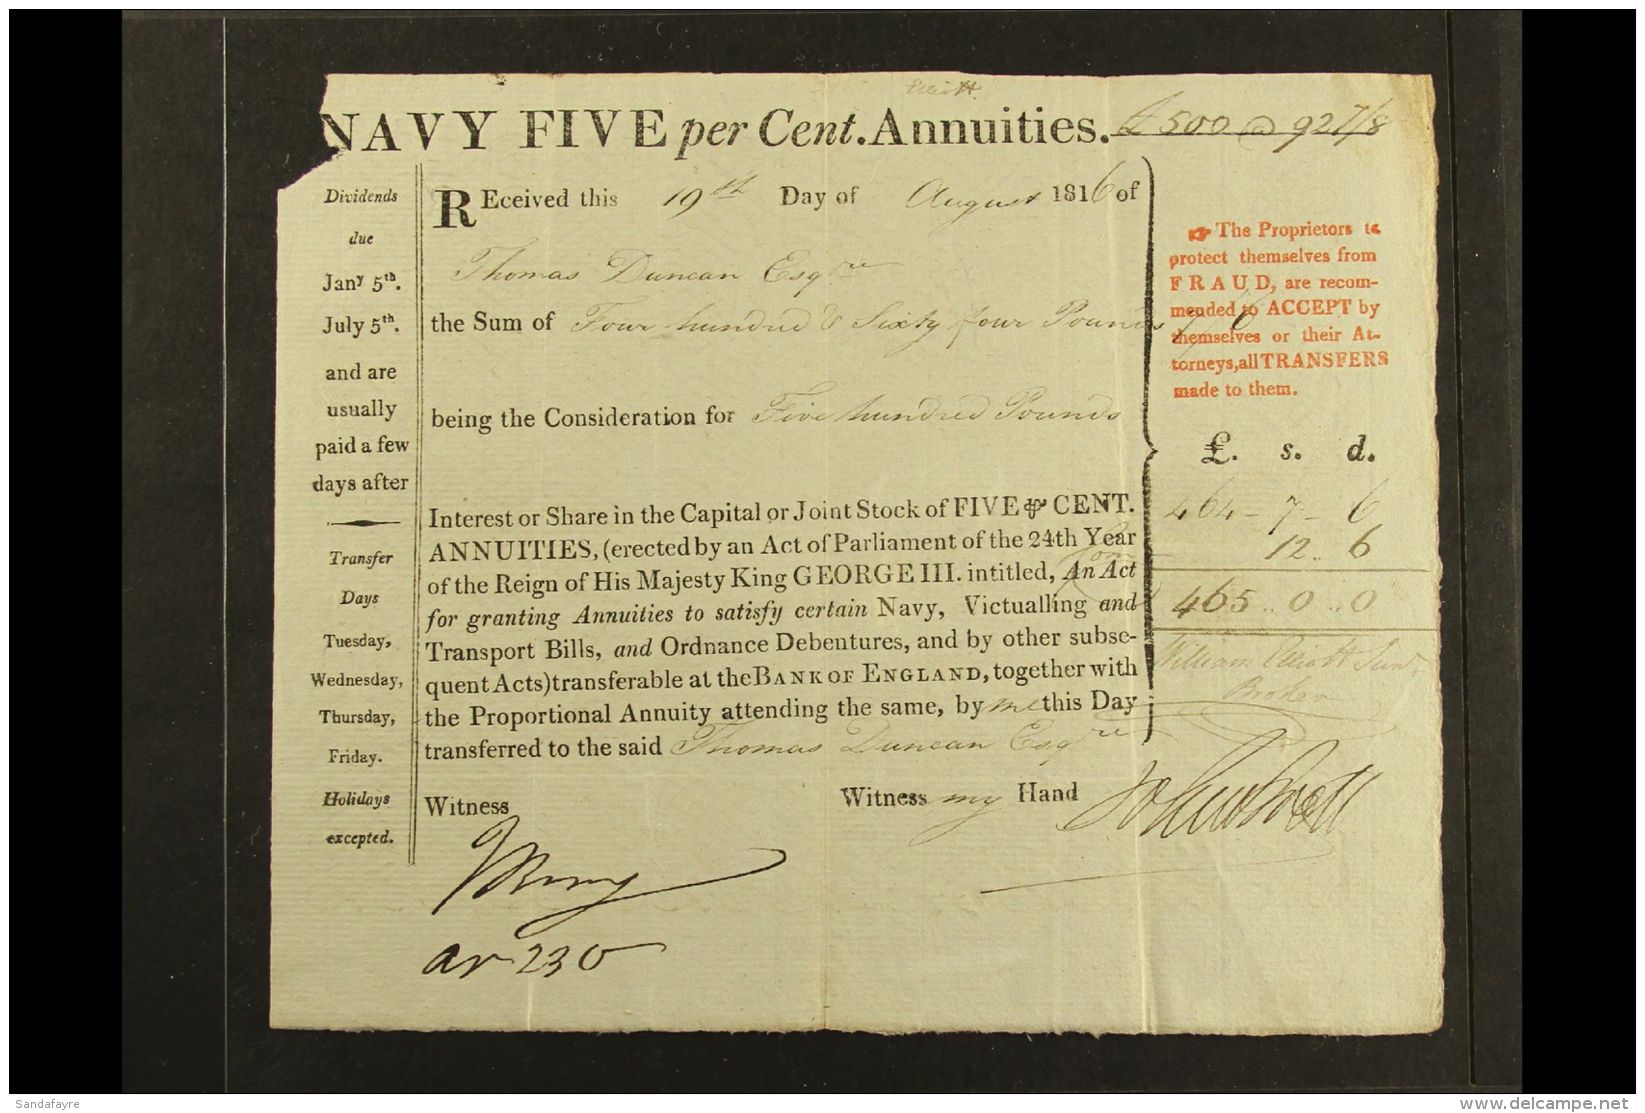 Elliott
NAVY FIVE per Cent. Annuities. £500 @ 92 7/8
Dividends
due
Jany 5th.
July 5th.
and are
usually
paid a few
days after
Transfer
Days
Tuesday,
Wednesday,
Thursday,
Friday.
Holidays
excepted.
REceived this 19th Day of August 1816 of
Thomas Duncan Esqre
the Sum of Four hundred & Sixty four Pounds 7/6
being the Consideration for Five hundred Pounds
Interest or Share in the Capital or Joint Stock of FIVE ⅌ CENT.
ANNUITIES, (erected by an Act of Parliament of the 24th Year
of the Reign of His Majesty King GEORGE III. intitled, An Act
for granting Annuities to satisfy certain Navy, Victualling and
Transport Bills, and Ordnance Debentures, and by other subse-
quent Acts) transferable at the BANK OF ENGLAND, together with
the Proportional Annuity attending the same, by me this Day
transferred to the said Thomas Duncan Esqre
Witness
Witness my Hand
ar 230
☞ The Proprietors to
protect themselves from
FRAUD, are recom-
mended to ACCEPT by
themselves or their At-
torneys, all TRANSFERS
made to them.
£. s. d.
464 - 7 - 6
12 .. 6
465 .. 0 .. 0
William Elliott Junr
Broker
Sandafayre
www.delcampe.net